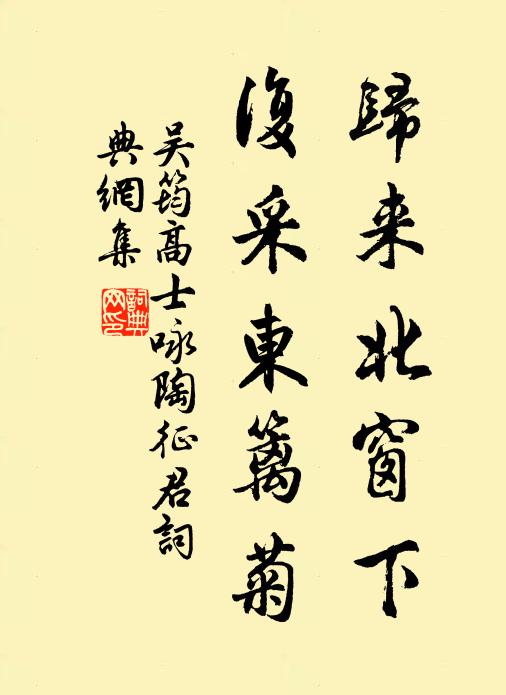 歸来北窗下
復采東籬菊
吴筠高士咏陶征君詞
典網集
詞典網印